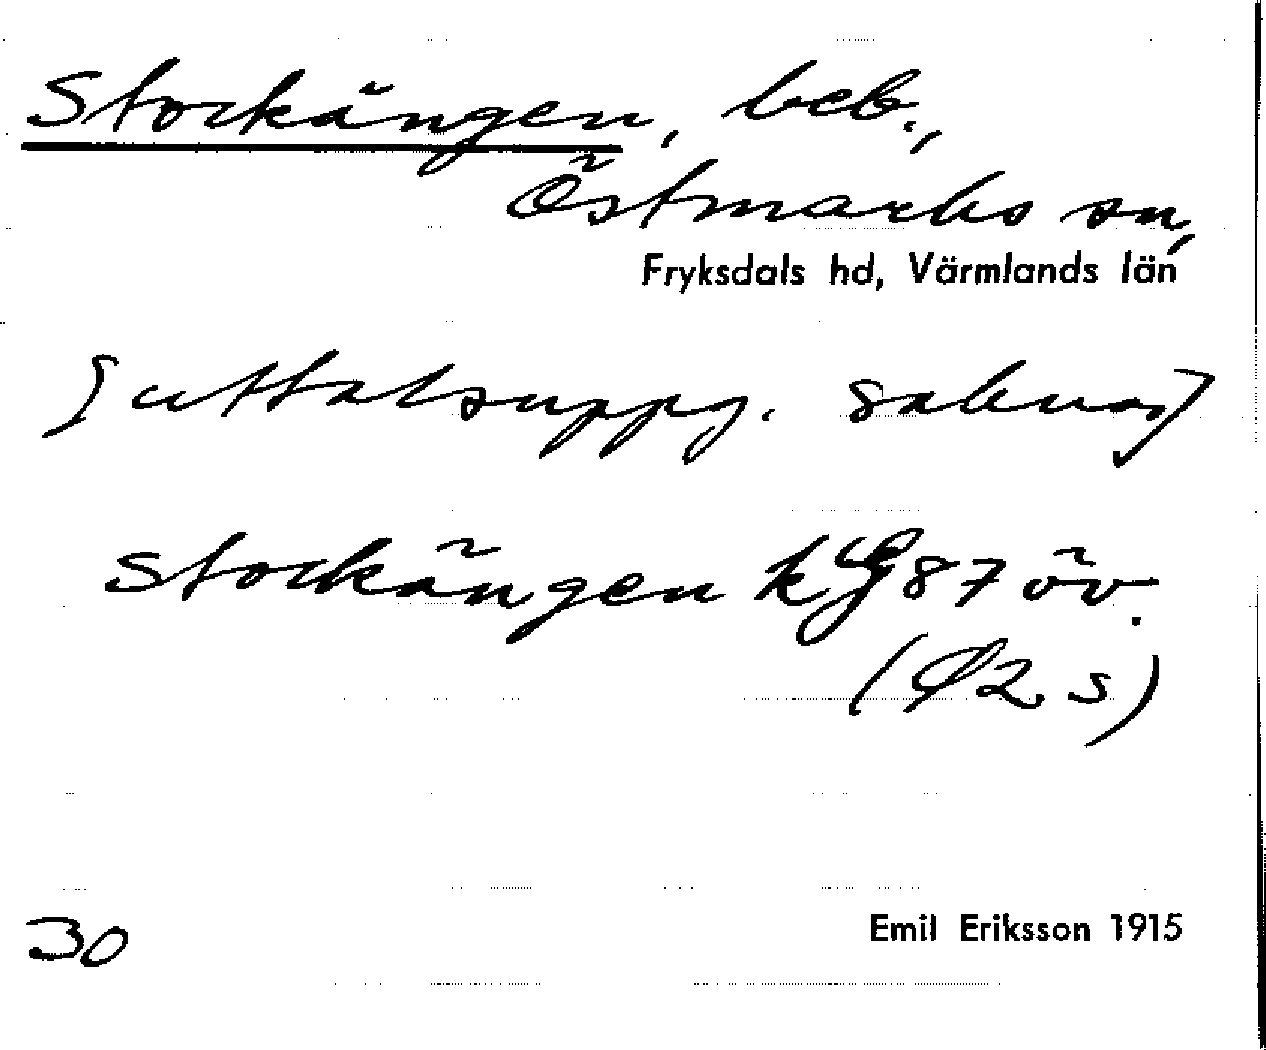 Stockängen, beb.,
Östmarks sn,
Fryksdals hd, Värmlands län
[uttalsuppg. saknas]
Stockängen 87 öv.
30
Emil Eriksson 1915